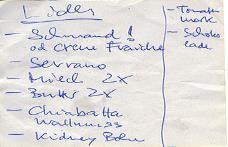 Lidl
- Schmand !
od Creme Fraiche
- Serrano
- Miel 2X
- Butter 2X
- Chiabatta
Wallnuss
- Kidney Bohn
- Tomaten
mark
- Schoko
lade